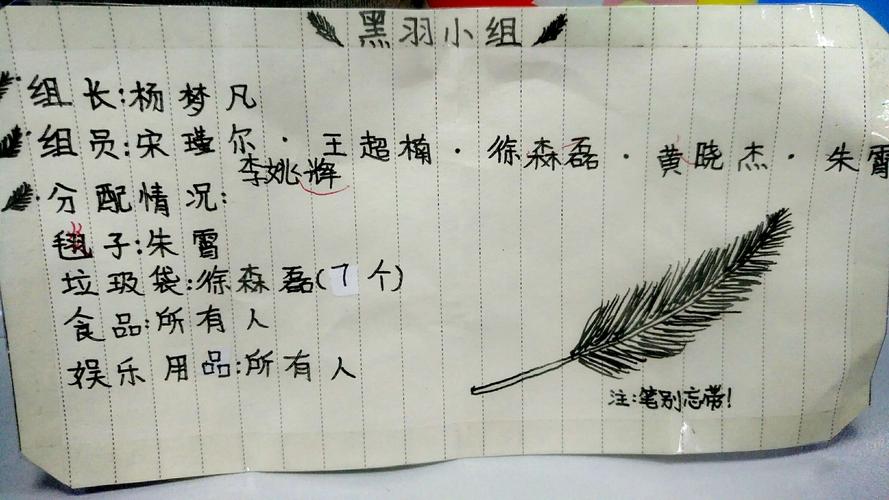 黑羽小组
组长:杨梦凡
组员:宋瑾尔·王超楠·徐森磊·黄晓杰·朱霄
李姚辉
分配情况:
毽子:朱霄
垃圾袋:徐森磊(7个)
食品:所有人
娱乐用品:所有人
注:笔别忘带!